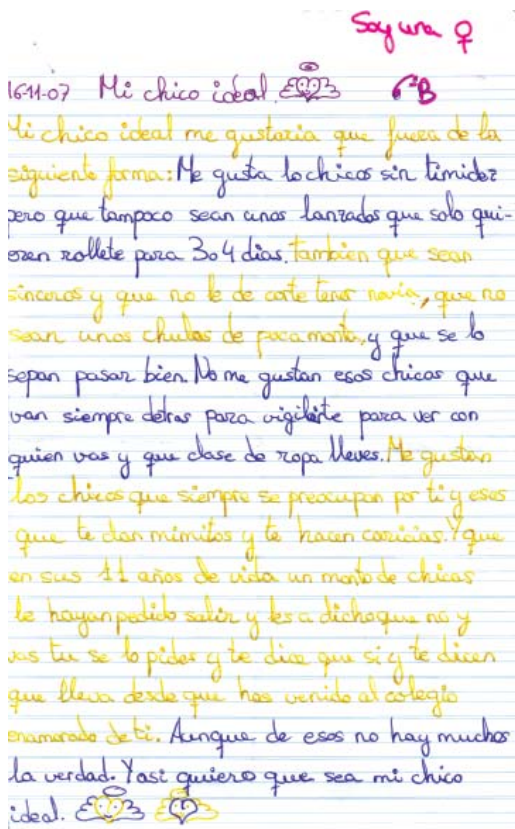 Soy una ♀
16-11-07 Mi chico ideal. 6ºB
Mi chico ideal me gustaria que fuera de la
siguiente forma: Me gusta lo chicos sin timidez
pero que tampoco sean unos lanzados que solo qui-
eren rollete para 3 o 4 dias. tambien que sean
sinceros y que no le de corte tener novia, que no
sean unos chulos de pacamonta, y que se lo
sepan pasar bien. No me gustan esos chicos que
van siempre detras para vigilarte para ver con
quien vas y que clase de ropa lleves. Me gustan
los chicos que siempre se preocupan por ti y esos
que te dan mimitos y te hacen caricias. Y que
en sus 11 años de vida un monto de chicas
le hayan pedido salir y les a dicho que no y
vas tu se lo pides y te dice que si y te dicen
que lleva desde que has venido al colegio
enamorado de ti. Aunque de esos no hay muchos
la verdad. Y asi quiero que sea mi chico
ideal.